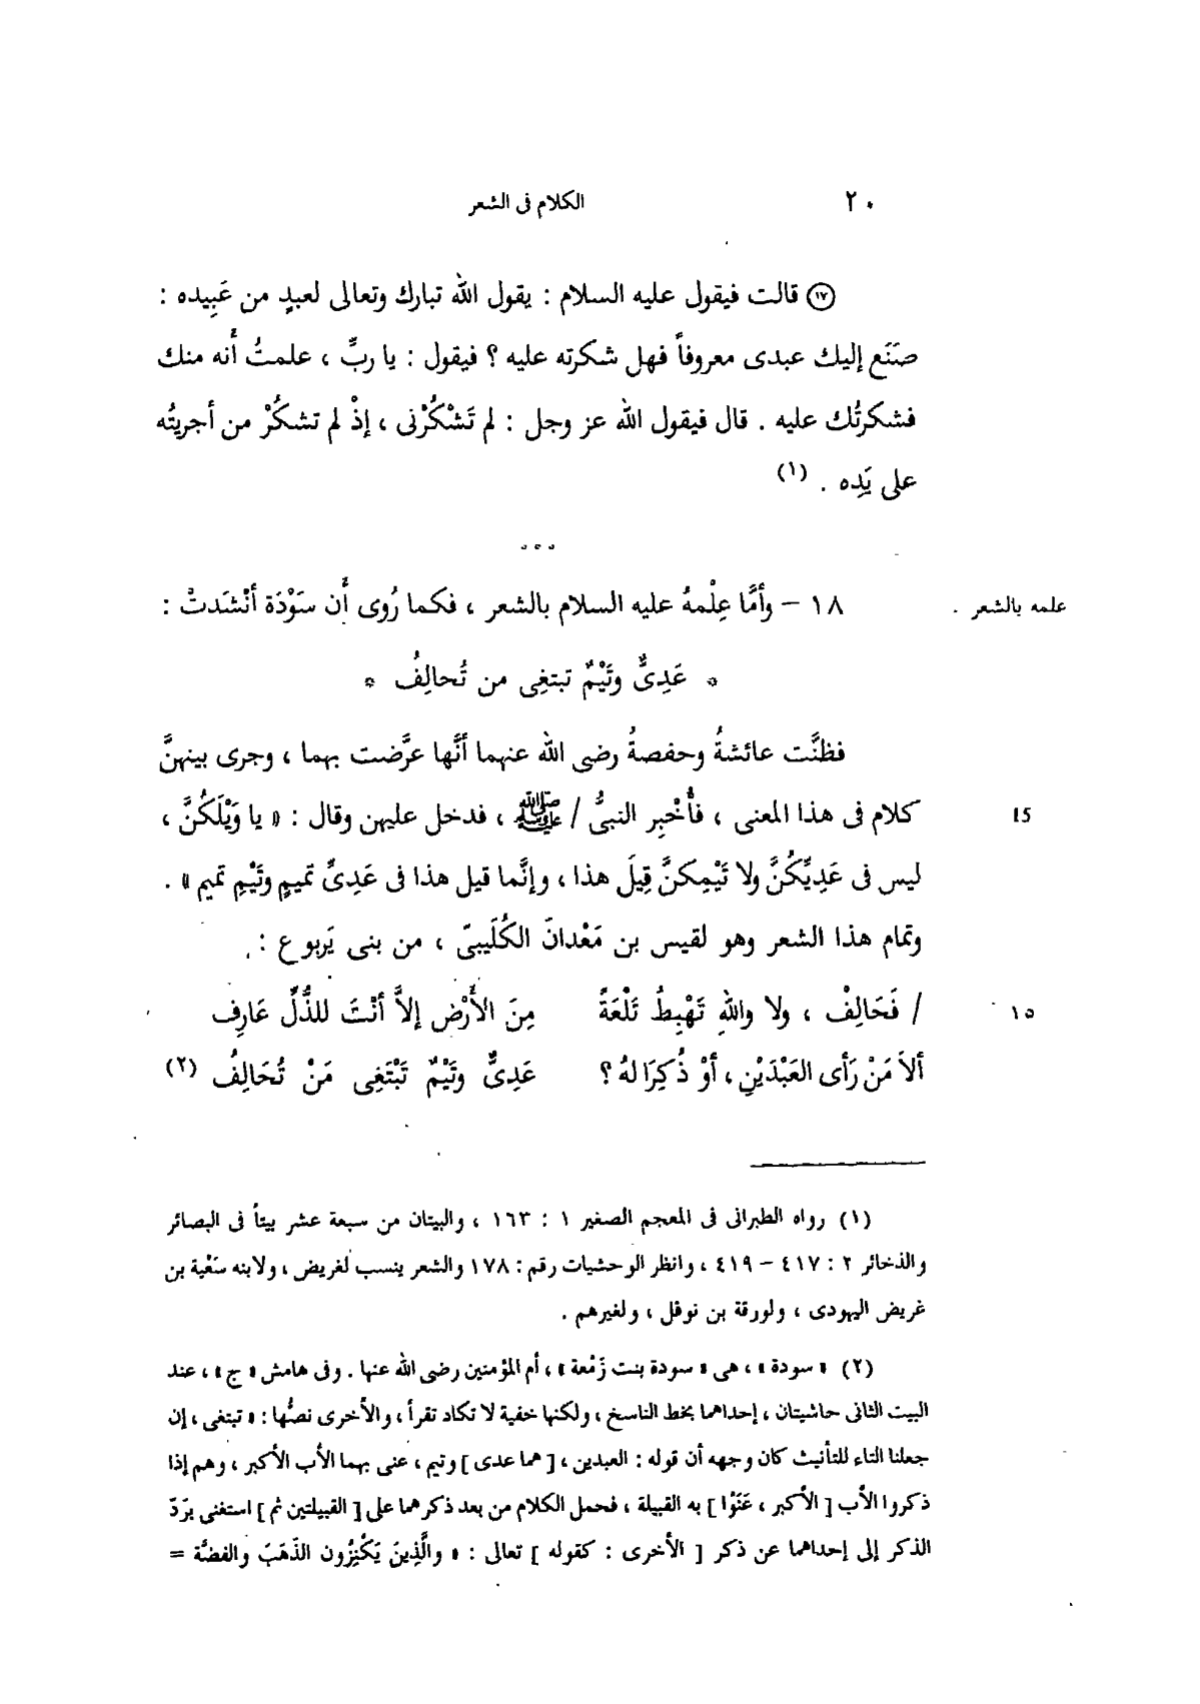 ٢٠ الكلام فى الشعر
(١٧) قالت فيقول عليه السلام : يقول الله تبارك وتعالى لعبدٍ من عَبِيده :
صَنَع إليك عبدى معروفاً فهل شكرته عليه ؟ فيقول : يا ربِّ ، علمتُ أنه منك
فشكرتُك عليه . قال فيقول الله عز وجل : لم تَشْكُرْنى ، إذْ لم تشكُرْ من أجريتُه
على يَدِه . (١)
علمه بالشعر . ١٨ – وأمَّا عِلْمهُ عليه السلام بالشعر ، فكما رُوى أن سَوْدَة أنْشَدتْ :
* عَدِىٌّ وتَيْمٌ تبتغِى من تُحالِفُ *
فظنَّت عائشةُ وحفصةُ رضى الله عنهما أنَّها عرَّضت بهما ، وجرى بينهنَّ
15 كلام فى هذا المعنى ، فأُخْبِر النبىُّ / ﷺ ، فدخل عليهن وقال : « يا وَيْلَكُنَّ ،
ليس فى عَدِيِّكُنَّ ولا تَيْمِكنَّ قِيلَ هذا ، وإنَّما قيل هذا فى عَدِىِّ تميمٍ وتَيْمِ تميم » .
وتمام هذا الشعر وهو لقيس بن مَعْدانَ الكُلَيبىّ ، من بنى يَربوع :
١٥ / فَحَالِفْ ، ولا واللهِ تَهْبِطُ تَلْعَةً مِنَ الأَرْضِ إلاَّ أنْتَ للذُّلِّ عَارِف
ألاَ مَنْ رَأى العَبْدَيْنِ ، أوْ ذُكِرَا لهُ ؟ عَدِىٌّ وتَيْمٌ تَبْتَغِى مَنْ تُحَالِفُ (٢)
(١) رواه الطبرانى فى المعجم الصغير ١ : ١٦٣ ، والبيتان من سبعة عشر بيتاً فى البصائر
والذخائر ٢ : ٤١٧ – ٤١٩ ، وانظر الوحشيات رقم : ١٧٨ والشعر ينسب لغريض ، ولابنه سَعْية بن
غريض اليهودى ، ولورقة بن نوفل ، ولغيرهم .
(٢) « سودة » ، هى « سودة بنت زَمْعة » ، أم المؤمنين رضى الله عنها . وفى هامش « ج » ، عند
البيت الثانى حاشيتان ، إحداهما بخط الناسخ ، ولكنها خفية لا تكاد تقرأ ، والأخرى نصُّها : « تبتغى ، إن
جعلنا التاء للتأنيث كان وجهه أن قوله : العبدين ، [ هما عدى ] وتيم ، عنى بهما الأب الأكبر ، وهم إذا
ذكروا الأب [ الأكبر ، عَنَوْا ] به القبيلة ، فحمل الكلام من بعد ذكرهما على [ القبيلتين ثم ] استغنى بَردّ
الذكر إلى إحداهما عن ذكر [ الأخرى : كقوله ] تعالى : « والَّذِينَ يَكْنِزُون الذّهَبَ والفضَّة =